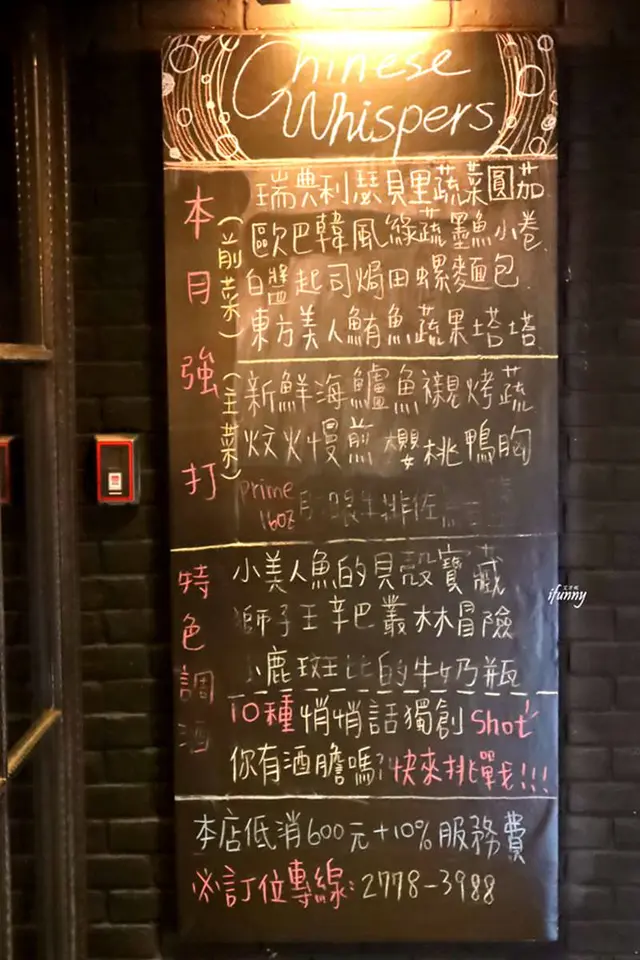 Chinese
Whispers
本月強打
(前菜)
瑞典利瑟貝里蔬菜圓茄
歐巴韓風綠蔬墨魚小卷.
白醬起司焗田螺麵包.
東方美人鮪魚蔬果塔塔.
(主菜)
新鮮海鱸魚襯烤蔬
炆火慢煎櫻桃鴨胸
prime
16oz 眼牛排佐
特色調酒
小美人魚的貝殼寶藏
獅子王辛巴叢林冒險
小鹿斑比的牛奶瓶
10種悄悄話獨創shot
你有酒膽嗎? 快來挑戰!!!
本店低消600元+10%服務費
※訂位專線: 2778-3988
ifunny